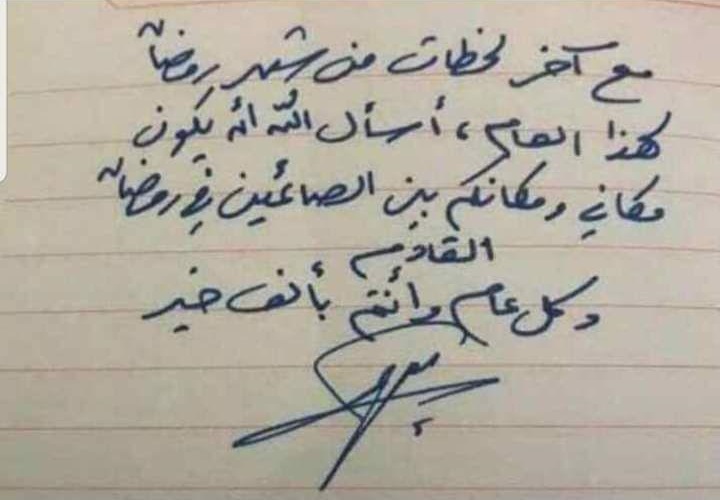 مع آخر لحظات من شهر رمضان
لهذا العام، أسأل الله أن يكون
مكاني ومكانكم بين الصائمين في رمضان
القادم
وكل عام وأنتم بألف خير